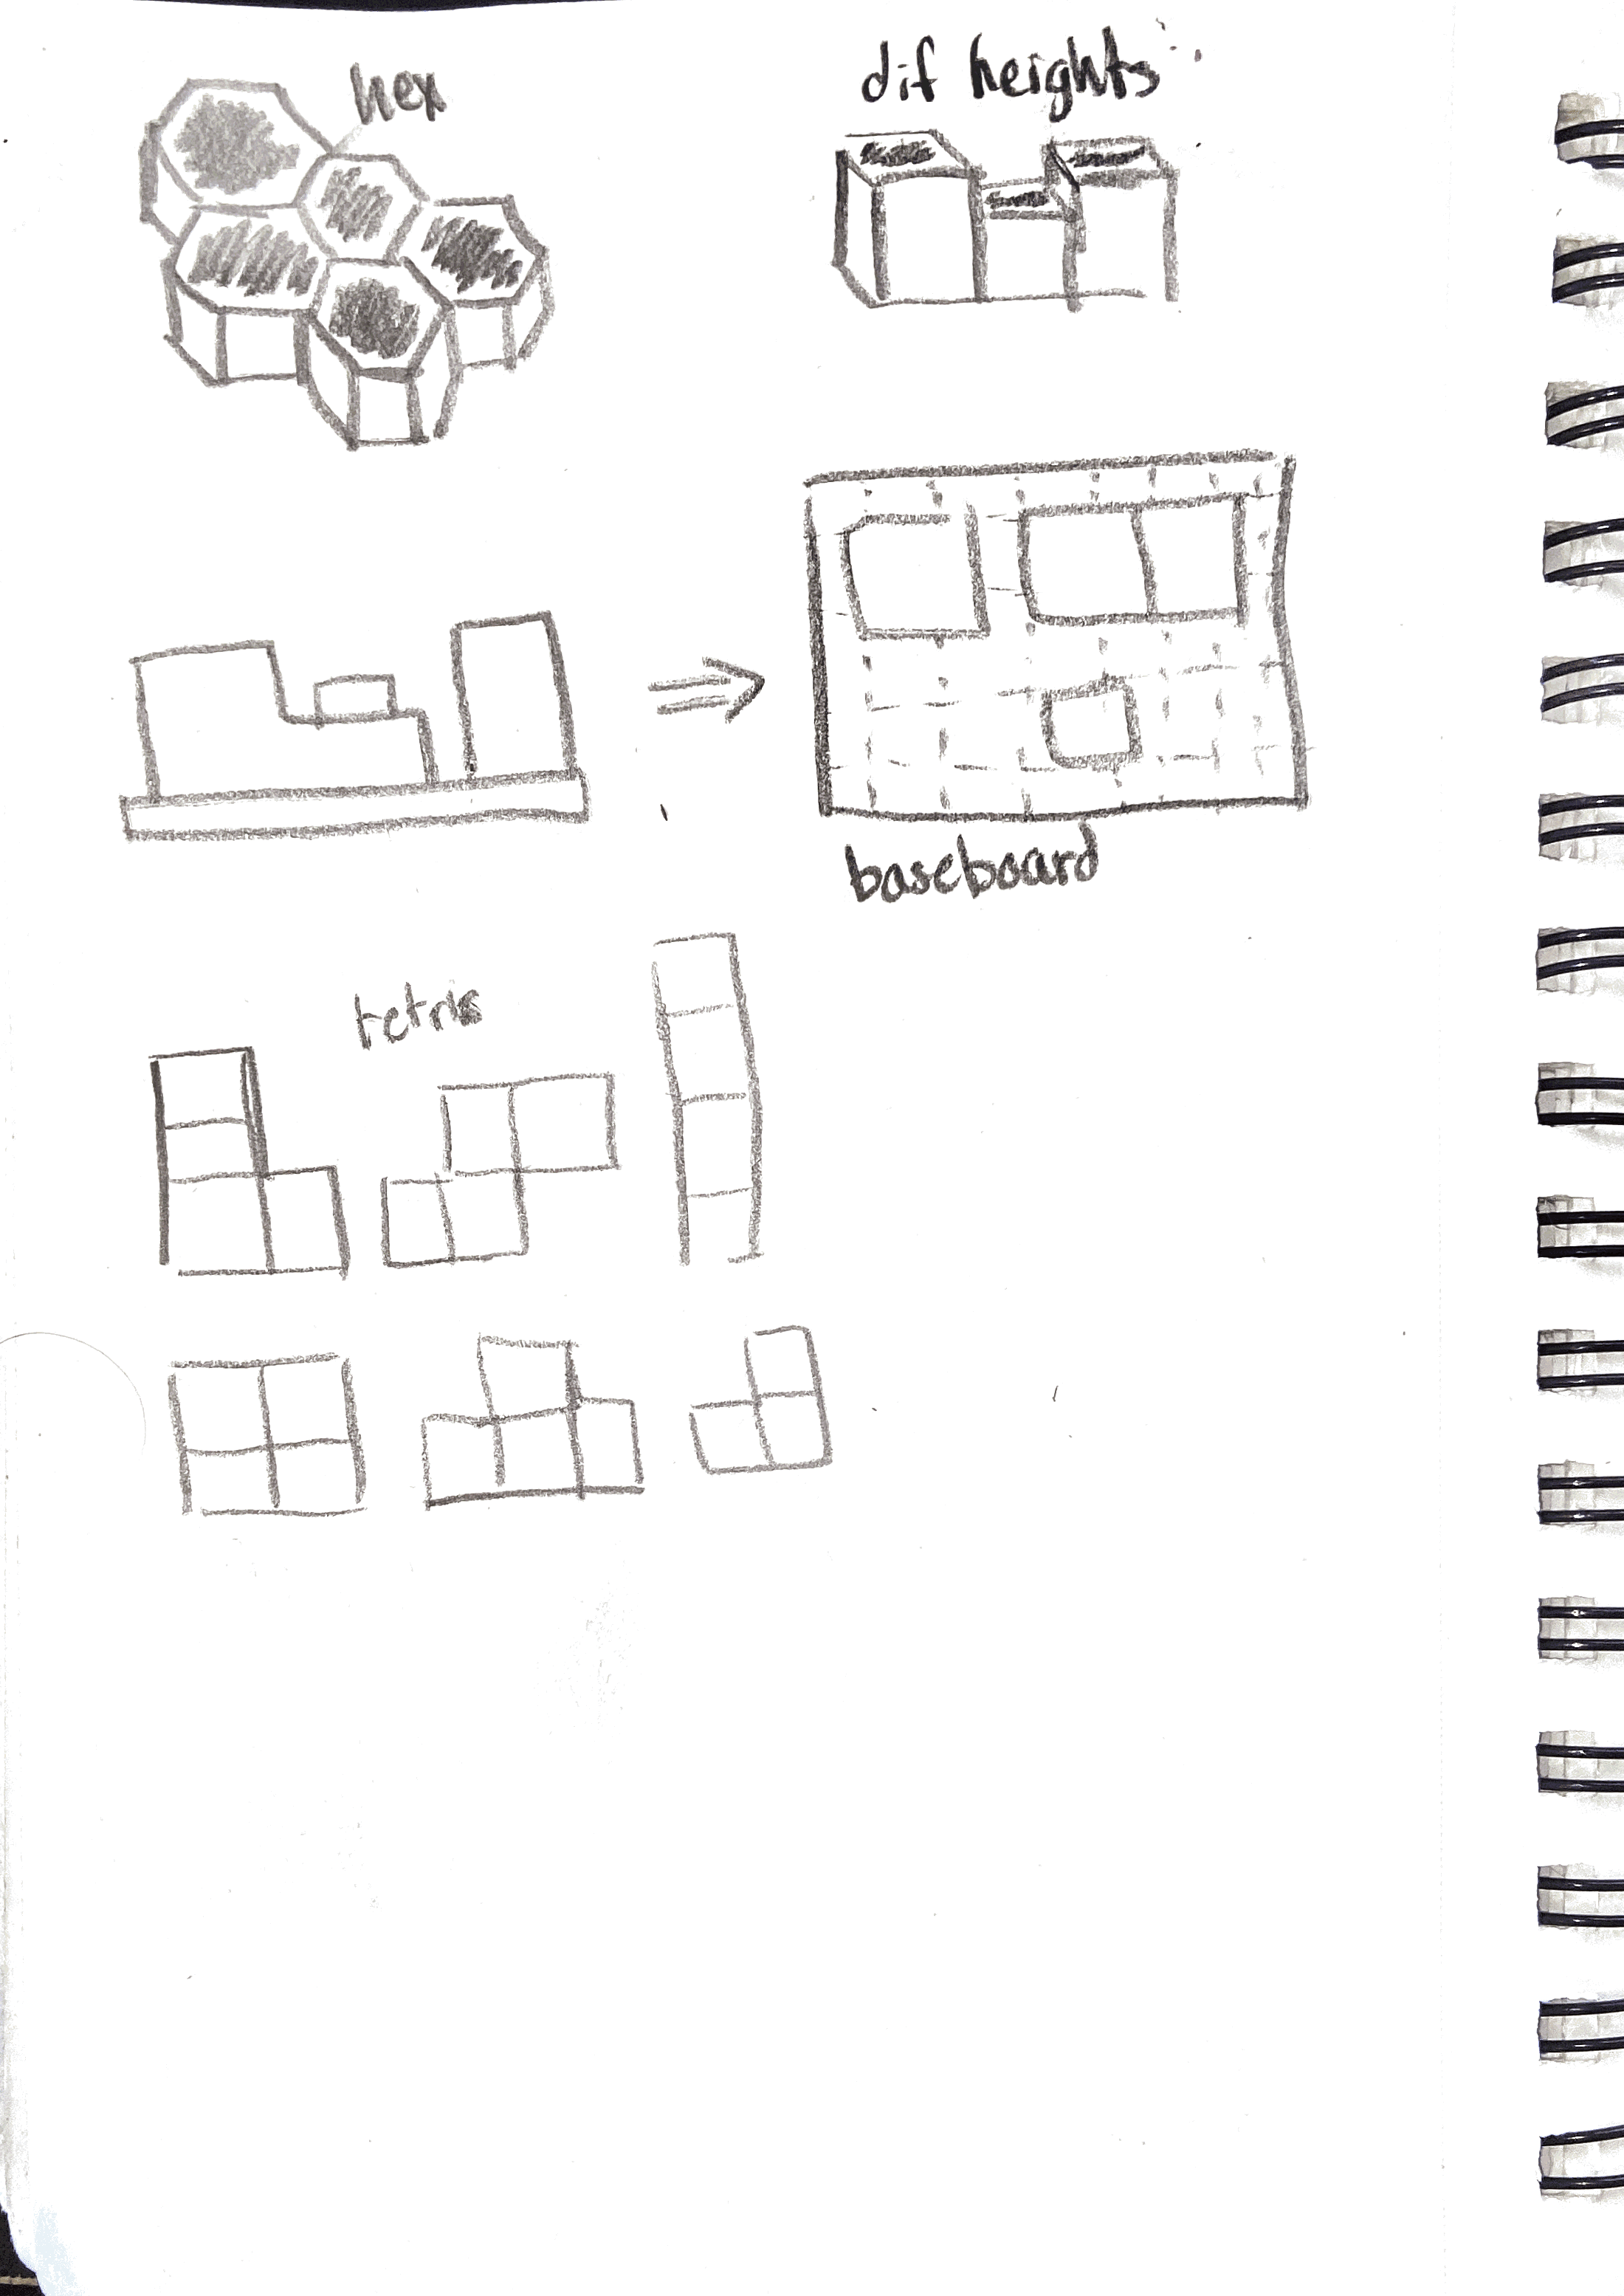 hex
dif heights
baseboard
tetris